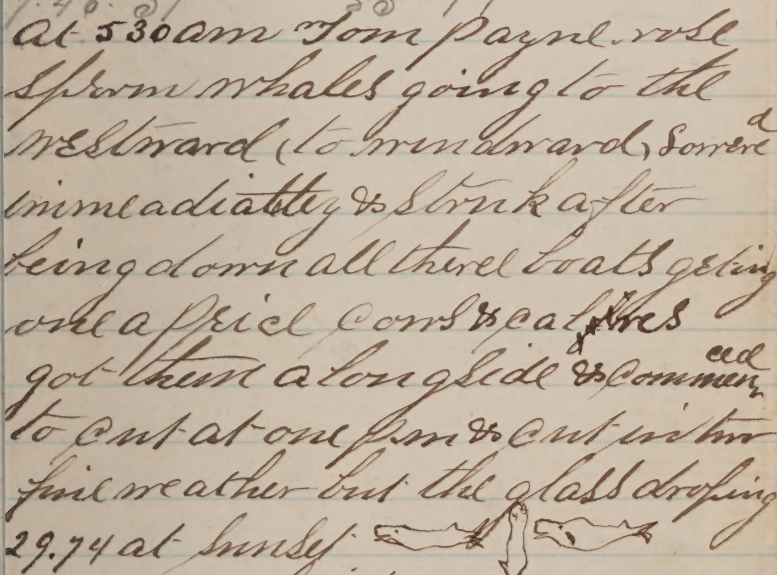 at 530 am Tom Payne rose
sperm whales going to the
westward (to windward) Lowered
immeadiatley & struk after
being down all threee boats geting
one a peice cows & calves
got them alongside & commenced
to cut at one pm & cut in two
fine weather but the glass droping
29.74 at sunset